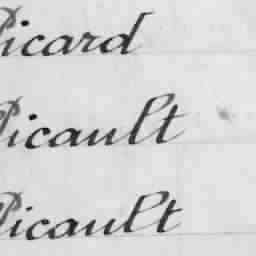 Picard
Picault
Picault